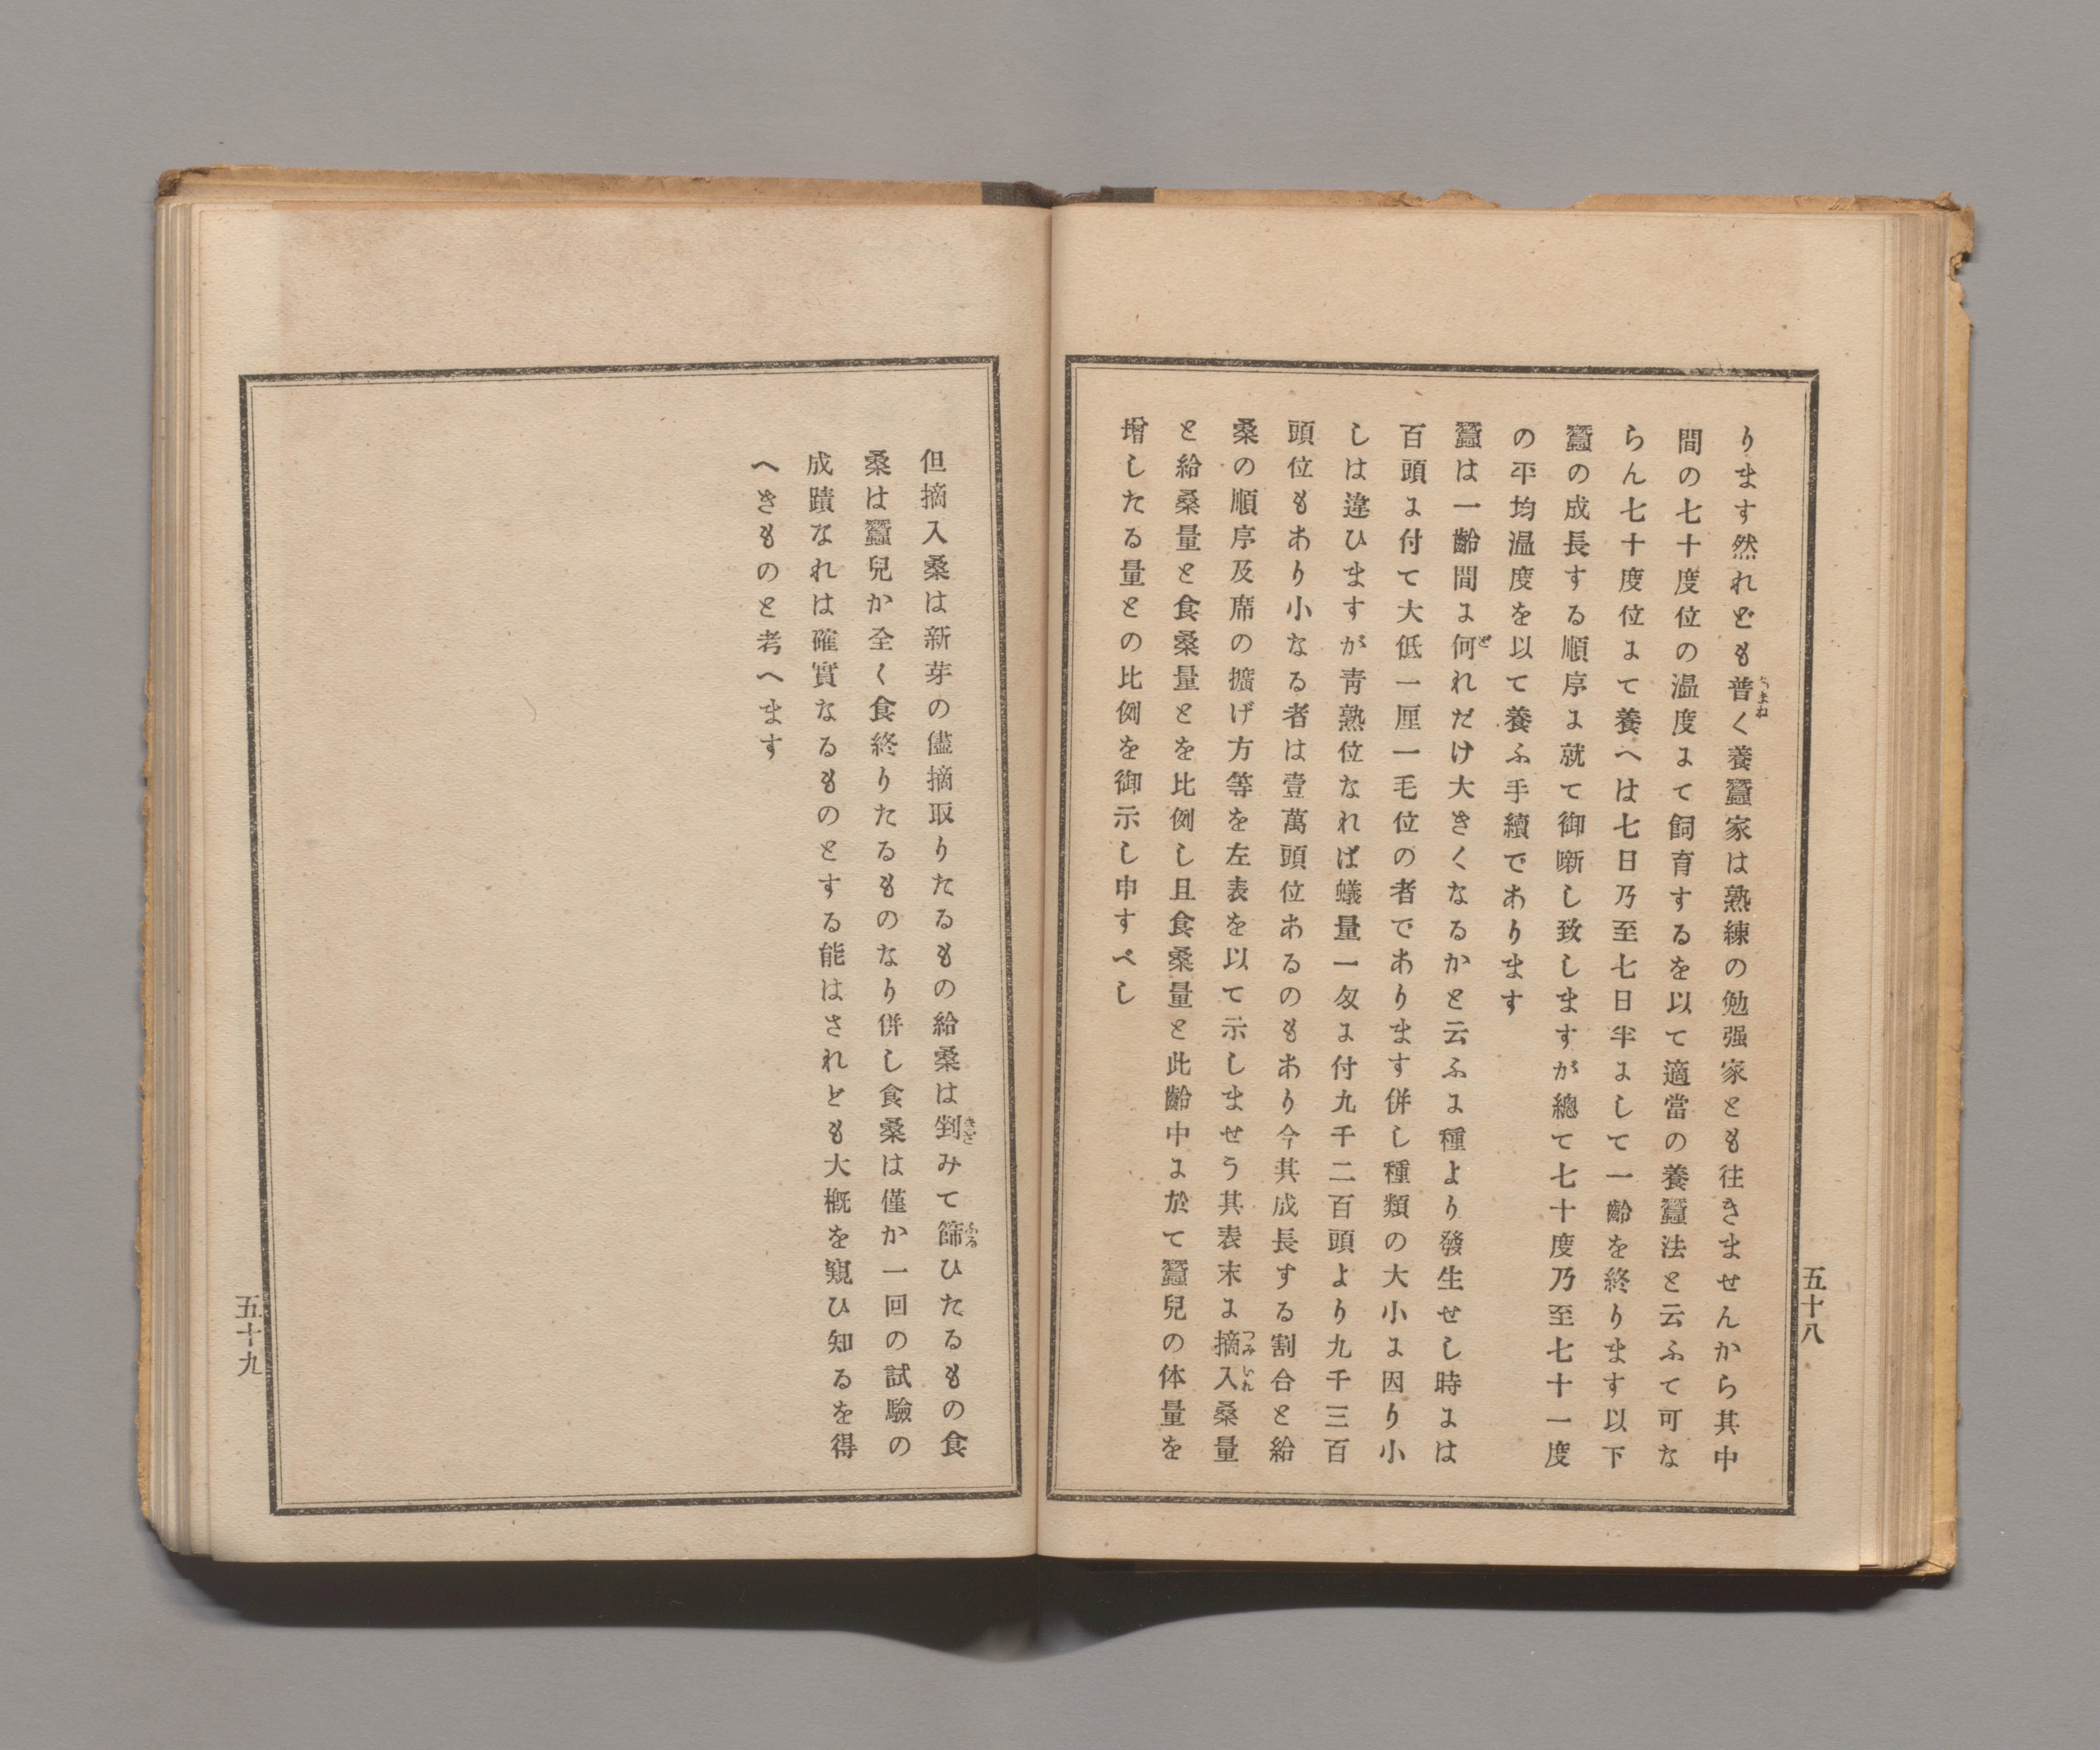 ります然れども普く養蠶家は熟練の勉强家とも往きませんから其中
間の七十度位の温度にて飼育するを以て適當の養蠶法と云ふて可な
らん七十度位にて養へは七日乃至七日半にして一齡を終ります以下
蠶の成長する順序に就て御噺し致しますが總て七十度乃至七十一度
の平均温度を以て養ふ手續であります
蠶は一齡間に何れだけ大きくなるかと云ふに種より發生せし時には
百頭に付て大低一厘一毛位の者であります併し種類の大小に因り小
しは違ひますが靑熟位なれば蟻量一匁に付九千二百頭より九千三百
頭位もあり小なる者は壹萬頭位あるのもあり今其成長する割合と給
桑の順序及席の擴げ方等を左表を以て示しませう其表末に摘入桑量
と給桑量と食桑量とを比例し且食桑量と此齡中に於て蠶兒の体量を
增したる量との比例を御示し申すべし
五十八
但摘入桑は新芽の儘摘取りたるもの給桑は剉みて篩ひたるもの食
桑は蠶兒か全く食終りたるものなり併し食桑は僅か一回の試驗の
成蹟なれは確實なるものとする能はされとも大槪を窺ひ知るを得
へきものと考へます
五十九